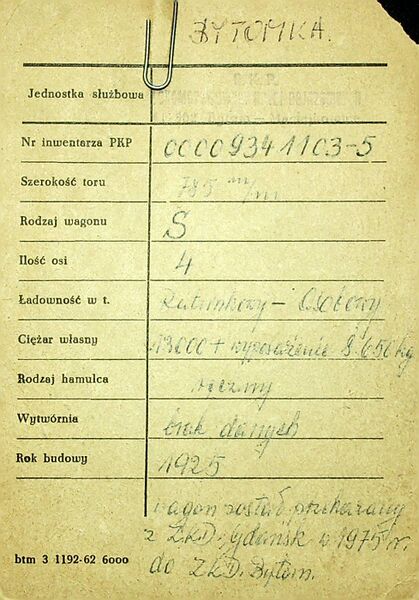 BYTOMKA.
Jednostka służbowa
Nr inwentarza PKP 00009341103-5
Szerokość toru 785 m/m
Rodzaj wagonu S
Ilość osi 4
Ładowność w t. Ratunkowy - Osobowy
Ciężar własny 13000 + wyposażenie 3.650 kg
Rodzaj hamulca ręczny
Wytwórnia brak danych
Rok budowy 1925
wagon został przekazany
z ZKD. Gdańsk w 1975 r.
do ZKD. Bytom.
btm 3 1192-62 6000